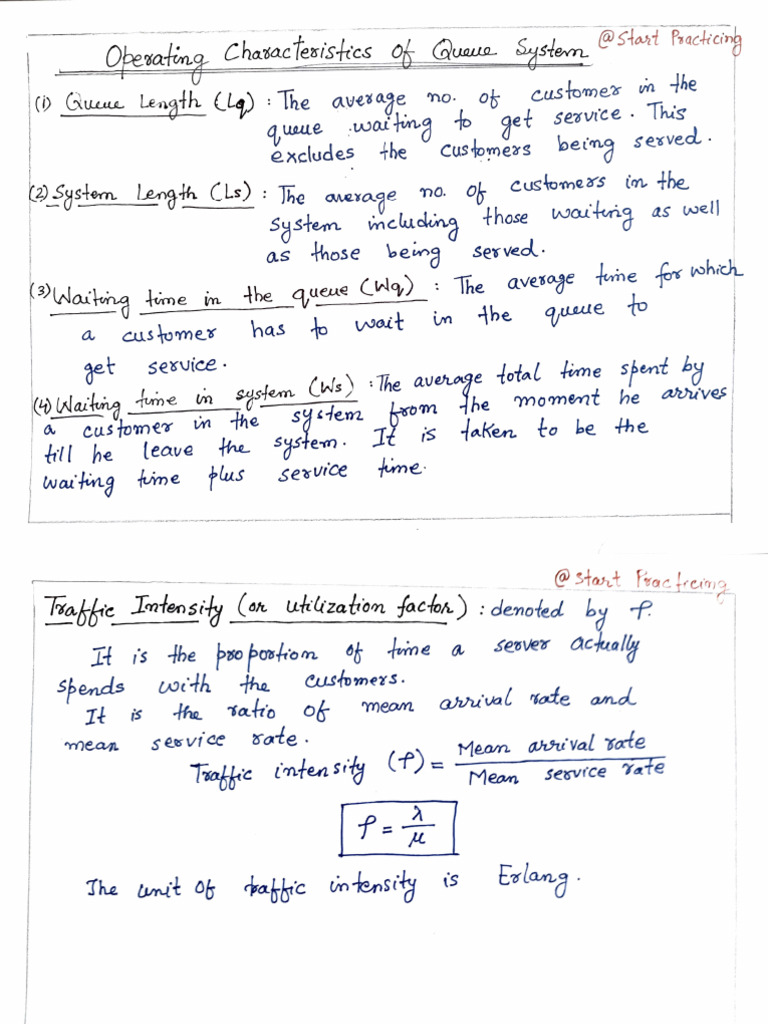 Operating Characteristics of Queue System @Start Practicing
(1) Queue Length (Lq) : The average no. of customer in the
queue waiting to get service. This
excludes the customers being served.
(2) System Length (Ls) : The average no. of customers in the
system including those waiting as well
as those being served.
(3) Waiting time in the queue (Wq) : The average time for which
a customer has to wait in the queue to
get service.
(4) Waiting time in system (Ws) : The average total time spent by
a customer in the system from the moment he arrives
till he leave the system. It is taken to be the
waiting time plus service time.
@Start Practicing
Traffic Intensity (or utilization factor) : denoted by ρ.
It is the proportion of time a server actually
spends with the customers.
It is the ratio of mean arrival rate and
mean service rate.
Traffic intensity (ρ) = Mean arrival rate / Mean service rate
ρ = λ / μ
The unit of traffic intensity is Erlang.